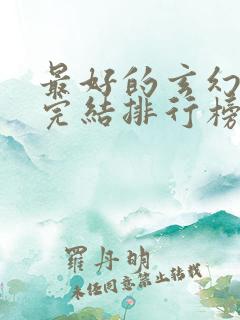 最好的玄幻
完結排行榜
羅丹明
未经同意禁止转载